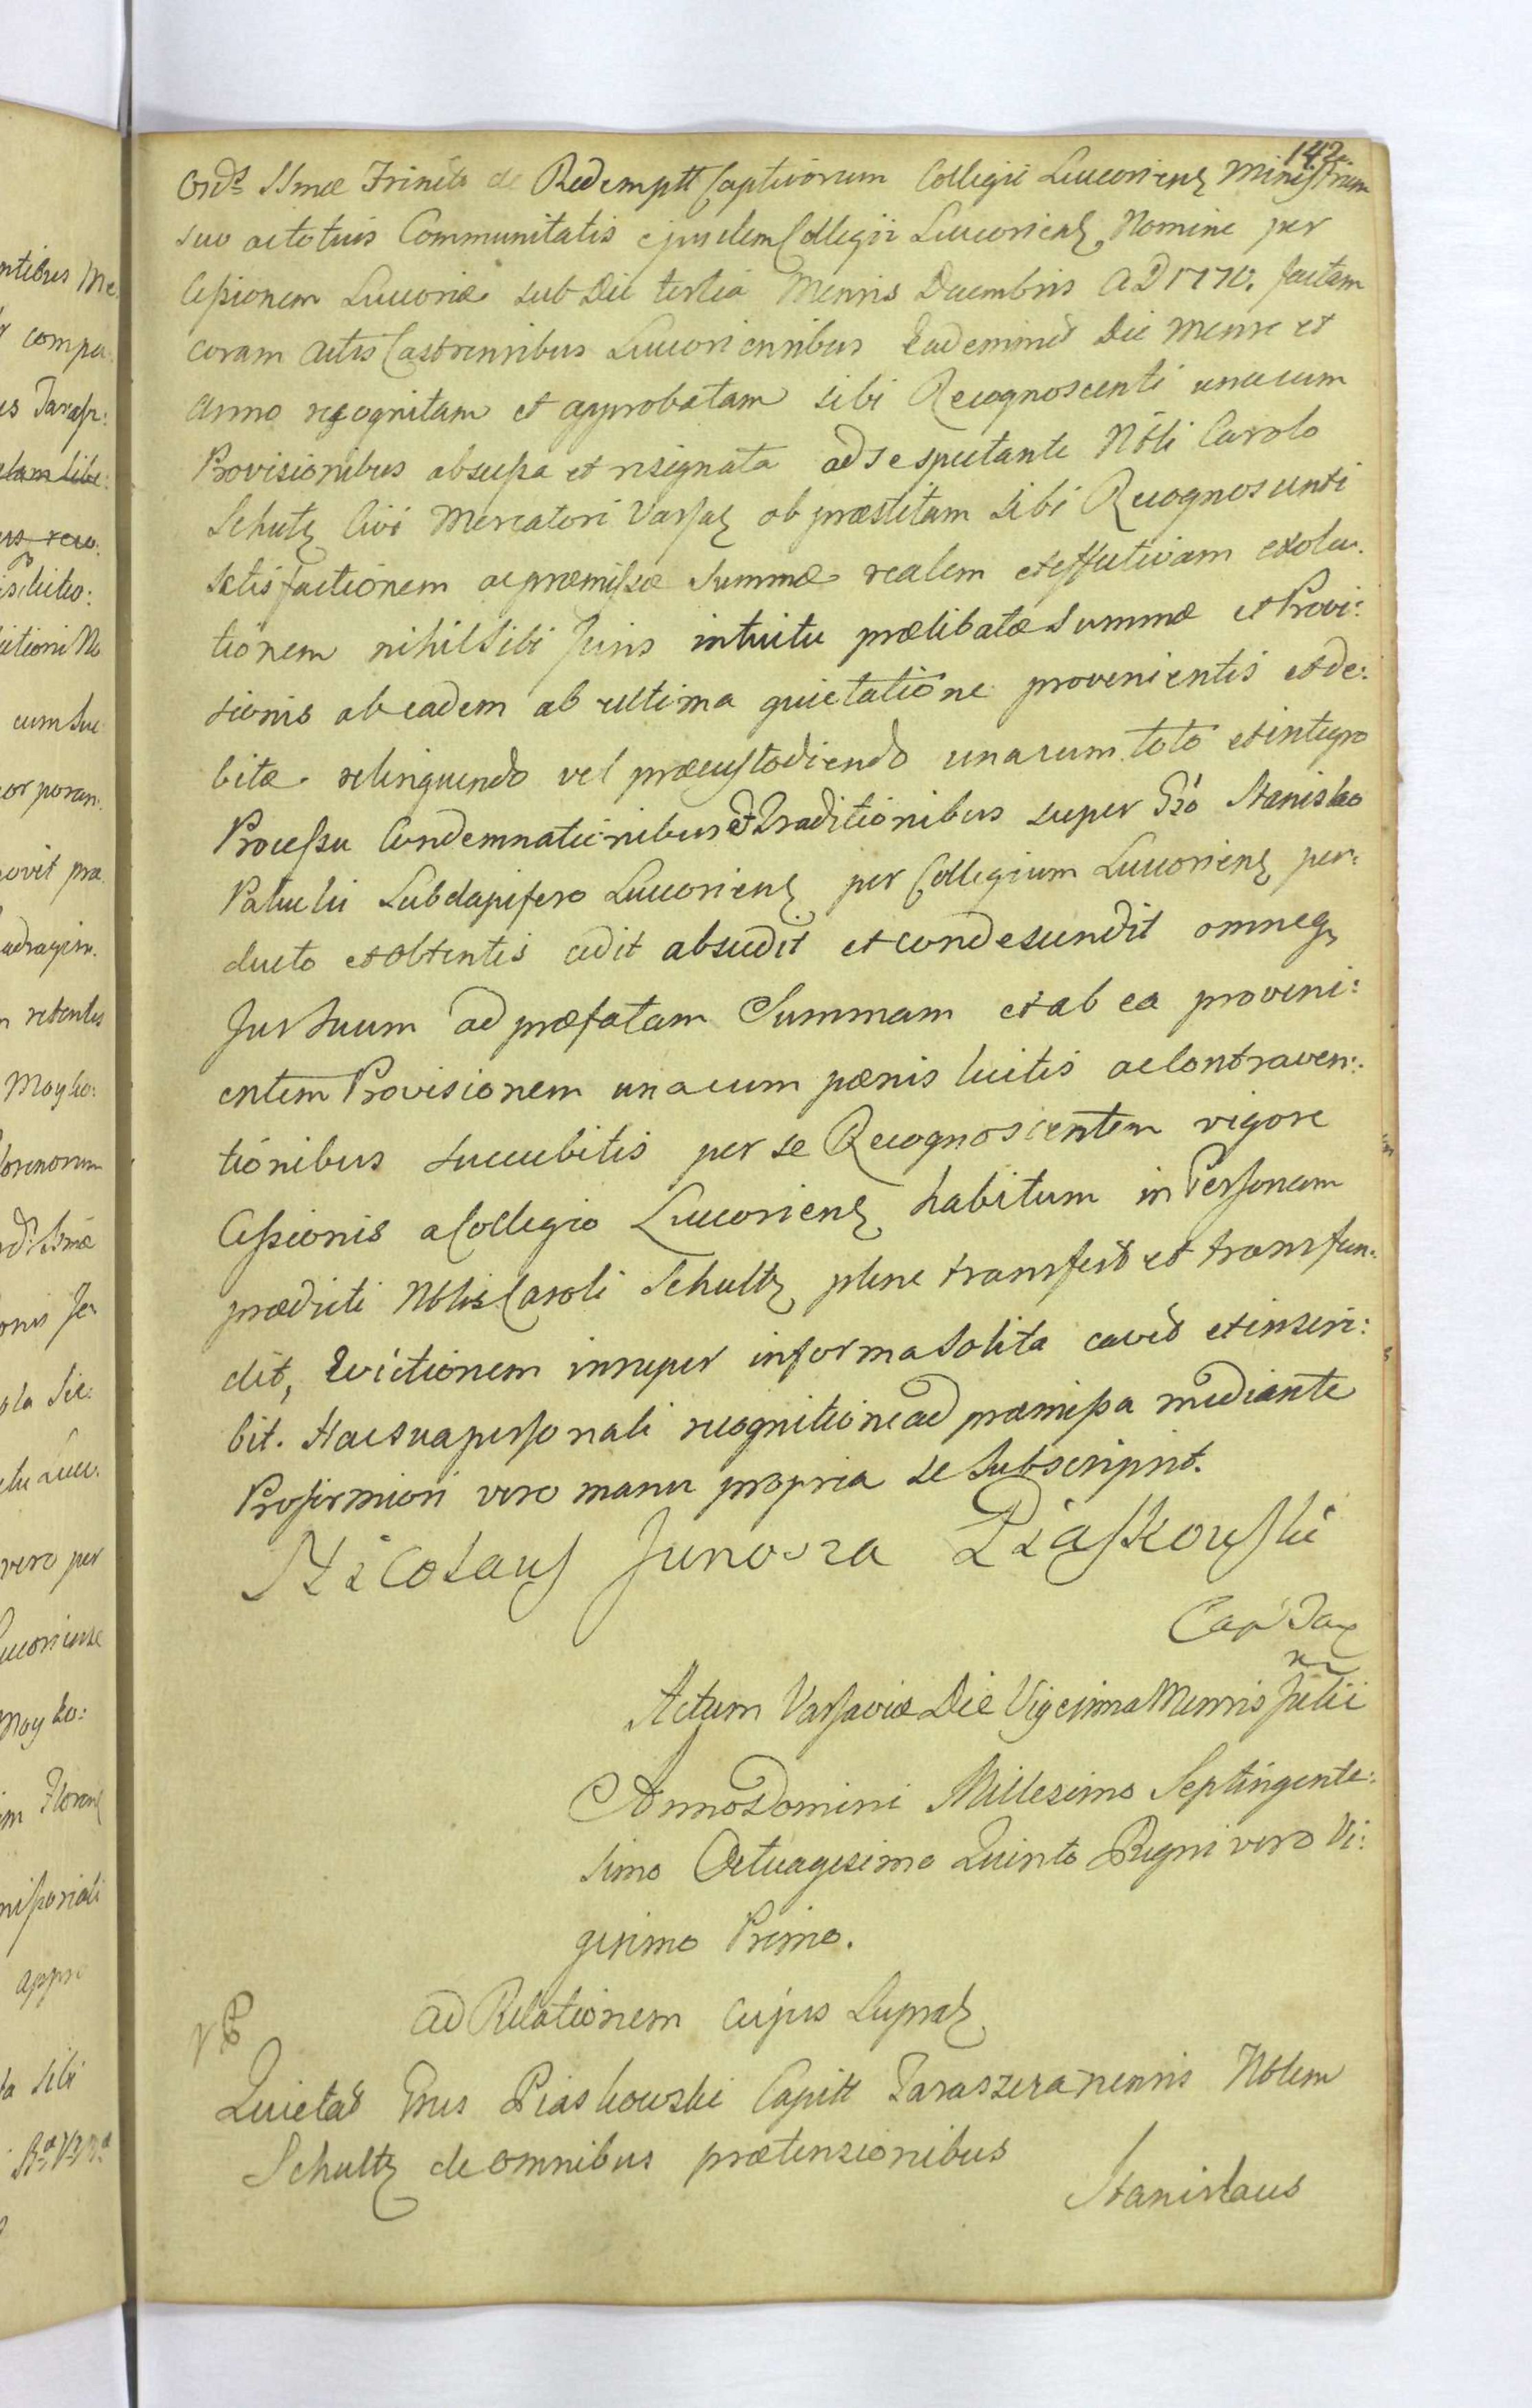 142
Ordis SSmæ Trinits de Redemptt Captivorum Collegii Luceoriens Ministrum
suo ac totius Communitatis ejusdem Collegii Luceoriens Nomine per
Cessionem Luceoriæ sub Die tertia Mensis Decembris AD factam
coram Actis Castrensibus Luceoriensibus Eademmet Die Mense et
Anno recognitam et approbatam sibi Recognoscenti unacum
Provisionibus abscessa et resignata ad se spectante Nbli Carolo
Schultz Civi Mercatori Varsaz ob præstitam sibi Recognoscenti
satisfactionem ac præmissæ Summæ realem et effectivam exolu:
tionem nihil sibi Juris intuitu prælibatæ Summæ et Provi:
sionis ab eadem ab ultima quietatione provenientis et de:
bitæ relinquendo vel præcustodiendo unacum toto et integro
Processu Condemnationibus et Traditionibus super Gso Stanislao
Subdapifero Luceoriens per Collegium Luceoriens per:
ducto et obtentis cedit abscedit et condescendit omneq
Jus suum ad præfatam Summam et ab ea proveni:
entem Provisionem unacum pœnis lucitis ac Contraven:
tionibus succubitis per se Recognoscentem vigore
Cessionis a Collegio Luceoriens habitum in Personam
prædicti Nblis Caroli Schultz plene transfert et transfun:
dit, Evictionem insuper in forma solita cavet et inscri:
bit. Hac sua personali recognitione ad præmissa mediante
Pro firmiori vero manu propria se subscripsit.
Nicolaus Junosza Piaskowski
Cap Tar
mp
Actum Varsaviæ Die Vigesima Mensis Julii
Anno Domini Millesimo Septingente:
simo Octuagesimo Quinto Regni vero Vi:
gesimo Primo.
Ad Relationem cujus Supraz
Quietat Gnus Piaskowski Capitt Taraszczanensis Nblem
Schultz de omnibus prætensionibus
Stanislaus